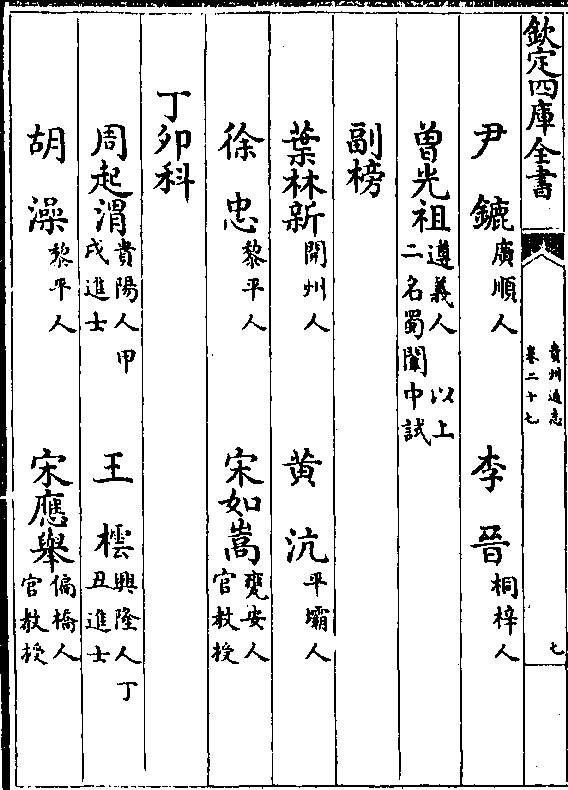 欽定四庫全書
貴州通志
卷二十七
七
尹鏕廣順人 李晉桐梓人
曾光祖遵義人 以上二名蜀闈中試
副榜
葉林新開州人 黃沆平壩人
徐忠黎平人 宋如嵩甕安人官教授
丁卯科
周起渭貴陽人甲戌進士 王橒興隆人丁丑進士
胡澡黎平人 宋應舉偏橋人官教授